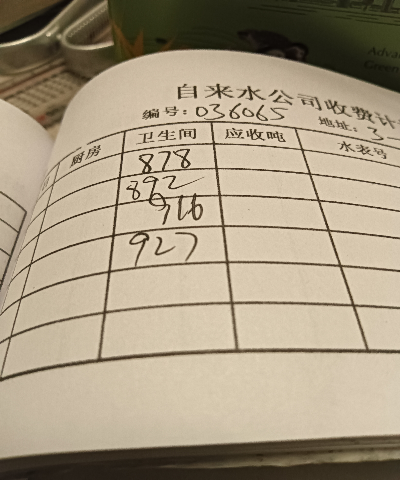 Adva
Green
自来水公司收费计
编号: 036065 地址: 3
厨房 卫生间 应收吨 水表号
878
892
916
927